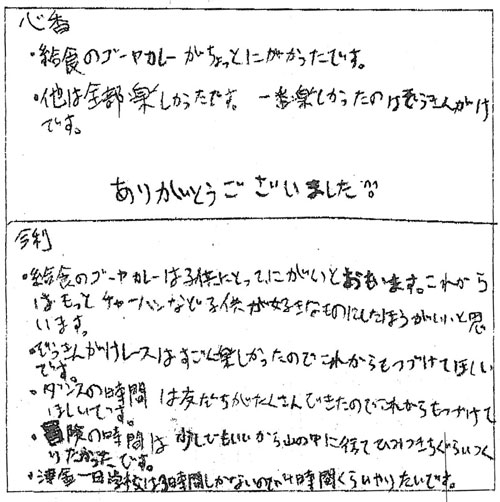 心香
・給食のゴーヤカレーがちょっとにがかったです。
・他は全部楽しかったです。一番楽しかったのはぞうきんがけ
です。
ありがとうございました
・給食のゴーヤカレーは子供にとってにがいとおもいます。これから
はもっとチャーハンなど子供が好きなものにしたほうがいいと思
います。
・ぞうきんがけレースはすごく楽しかったのでこれからもつづけてほしい
です。
・ダンスの時間は友だちがたくさんできたのでこれからもつづけて
ほしいです。
・冒険の時間は少しでもいいから山の中に行てひみつきちぐらいつく
りたかったです。
一日 時間しかないので 時間くらいやりたいです。